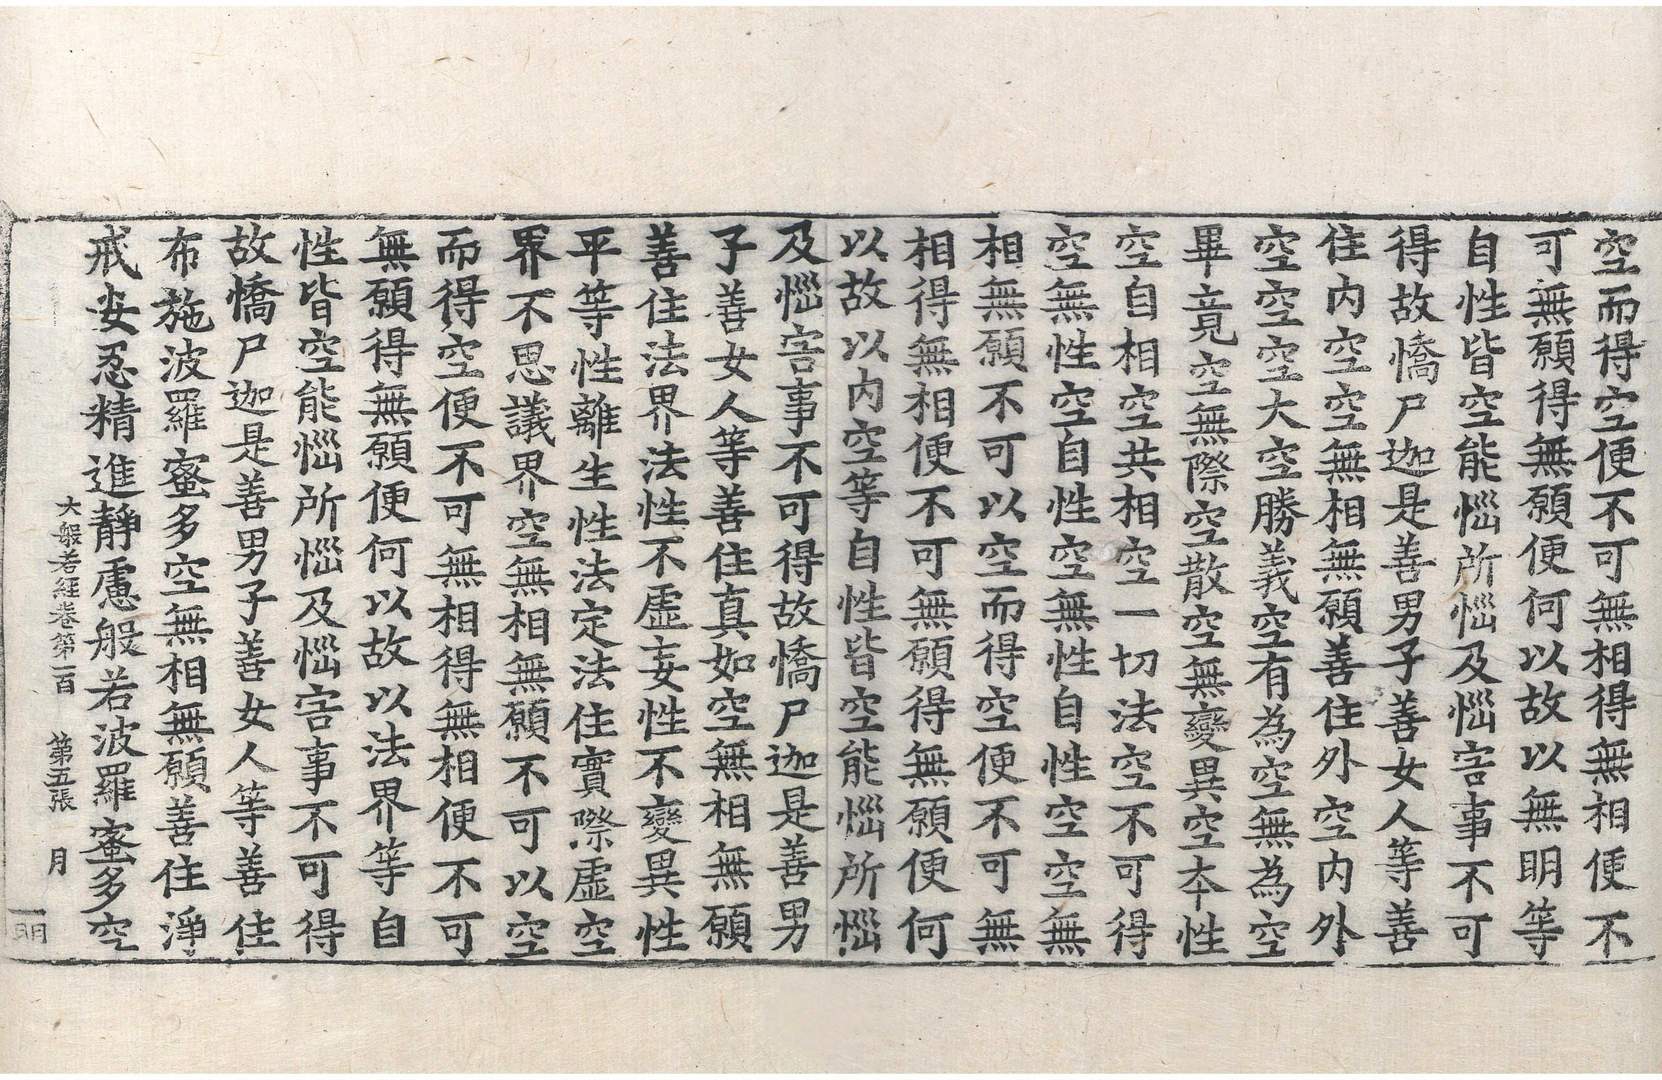 空而得空便不可無相得無相便不
可無願得無願便何以故以無明等
自性皆空能惱所惱及惱害事不可
得故憍尸迦是善男子善女人等善
住內空空無相無願善住外空內外
空空空大空勝義空有為空無為空
畢竟空無際空散空無變異空本性
空自相空共相空一切法空不可得
空無性空自性空無性自性空空無
相無願不可以空而得空便不可無
相得無相便不可無願得無願便何
以故以內空等自性皆空能惱所惱
及惱害事不可得故憍尸迦是善男
子善女人等善住真如空無相無願
善住法界法性不虛妄性不變異性
平等性離生性法定法住實際虛空
界不思議界空無相無願不可以空
而得空便不可無相得無相便不可
無願得無願便何以故以法界等自
性皆空能惱所惱及惱害事不可得
故憍尸迦是善男子善女人等善住
布施波羅蜜多空無相無願善住淨
戒安忍精進靜慮般若波羅蜜多空
大般若經卷第一百 第五張 月